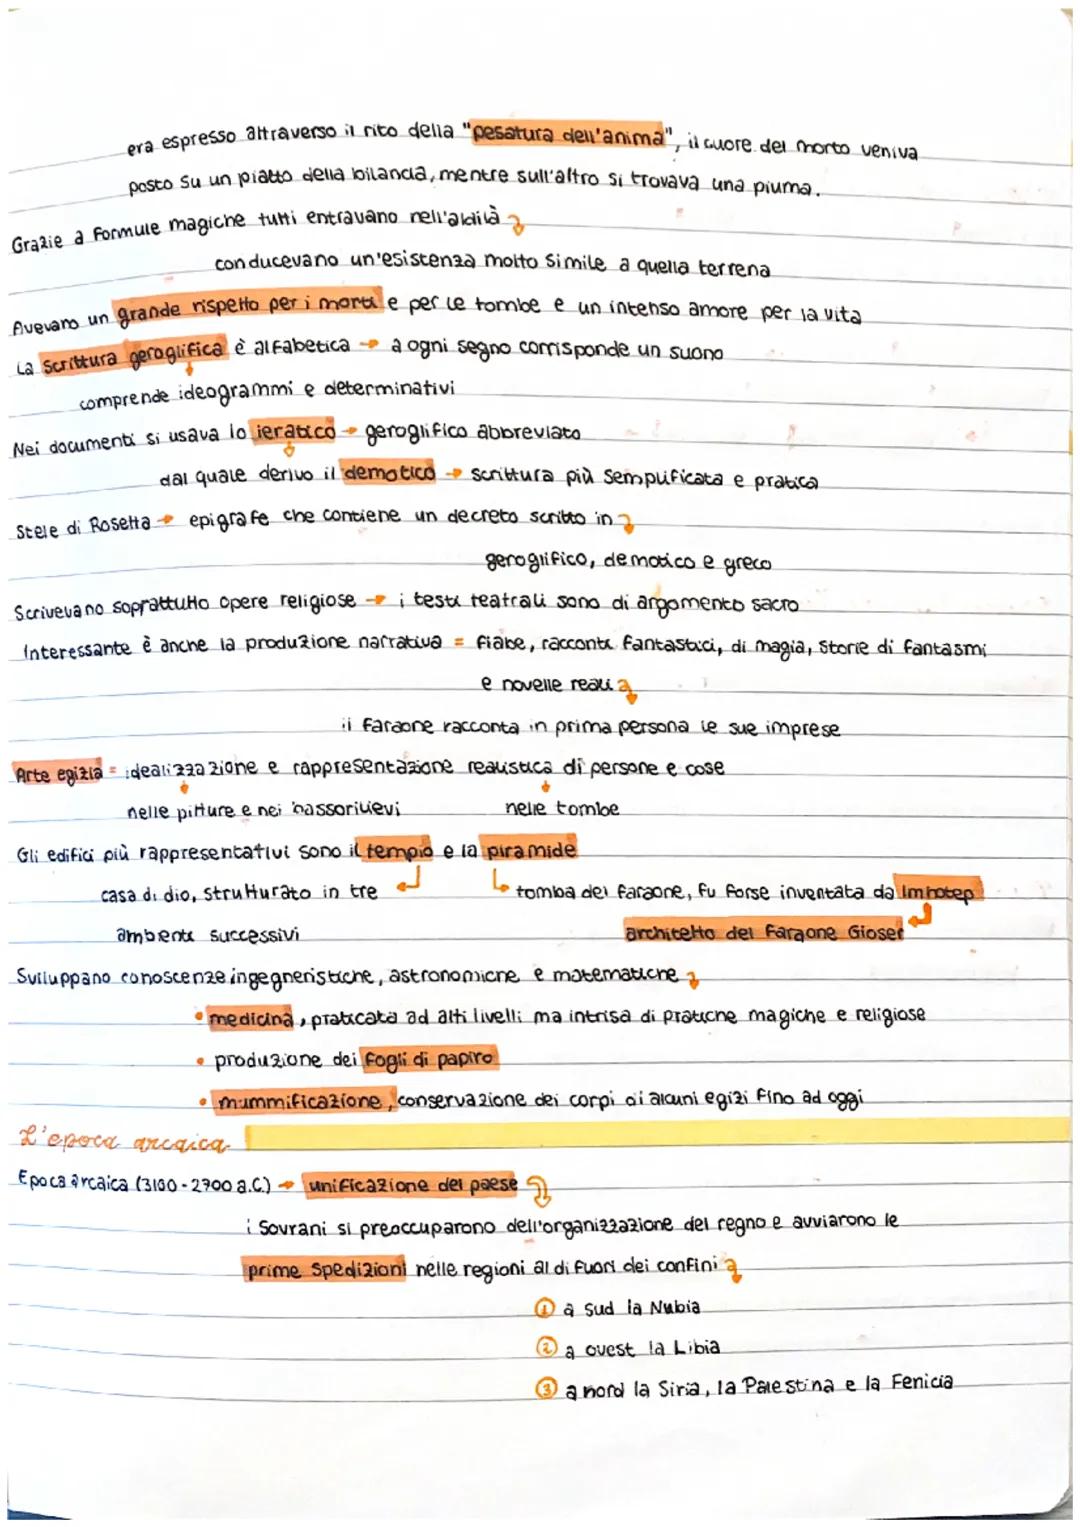 era espresso attraverso il rito della "pesatura dell'anima", il cuore del morto veniva
posto su un piatto della bilancia, mentre sull'altro si trovava una piuma.
Grazie a formule magiche tutti entravano nell'aldilà
conducevano un'esistenza molto simile a quella terrena
Avevano un grande rispetto per i morti e per le tombe e un intenso amore per la vita
La scrittura geroglifica è alfabetica → a ogni segno corrisponde un suono
comprende ideogrammi e determinativi
Nei documenti si usava lo ieratico → geroglifico abbreviato
dal quale derivo il demotico → scrittura più semplificata e pratica
Stele di Rosetta → epigrafe che contiene un decreto scritto in
geroglifico, demotico e greco
Scrivevano soprattutto opere religiose → i testi teatrali sono di argomento sacro
Interessante è anche la produzione narrativa = fiabe, racconti fantastici, di magia, storie di fantasmi
e novelle reali
il faraone racconta in prima persona le sue imprese
Arte egizia = idealizzazione e rappresentazione realistica di persone e cose
nelle pitture e nei bassorilievi nelle tombe
Gli edifici più rappresentativi sono il tempio e la piramide
casa di dio, strutturato in tre tomba del faraone, fu forse inventata da Imhotep
ambienti successivi architetto del faraone Gioser
Sviluppano conoscenze ingegneristiche, astronomiche e matematiche
• medicina, praticata ad alti livelli ma intrisa di pratiche magiche e religiose
• produzione dei fogli di papiro
• mummificazione, conservazione dei corpi di alcuni egizi fino ad oggi
L'epoca arcaica
Epoca arcaica (3100-2700 a.C.) → unificazione del paese
i sovrani si preoccuparono dell'organizzazione del regno e avviarono le
prime spedizioni nelle regioni al di fuori dei confini
① a sud la Nubia
② a ovest la Libia
③ a nord la Siria, la Palestina e la Fenicia